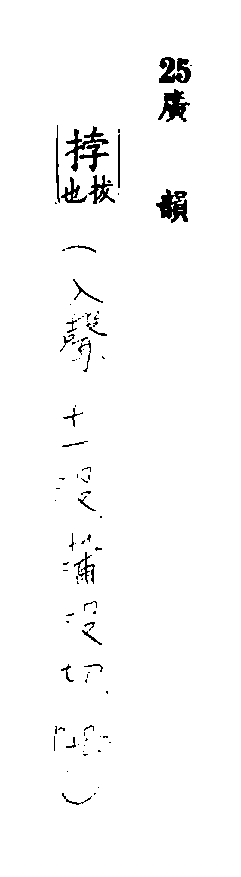 25 廣韻
挬 拔也
(入聲 十一沒 蒲沒切)